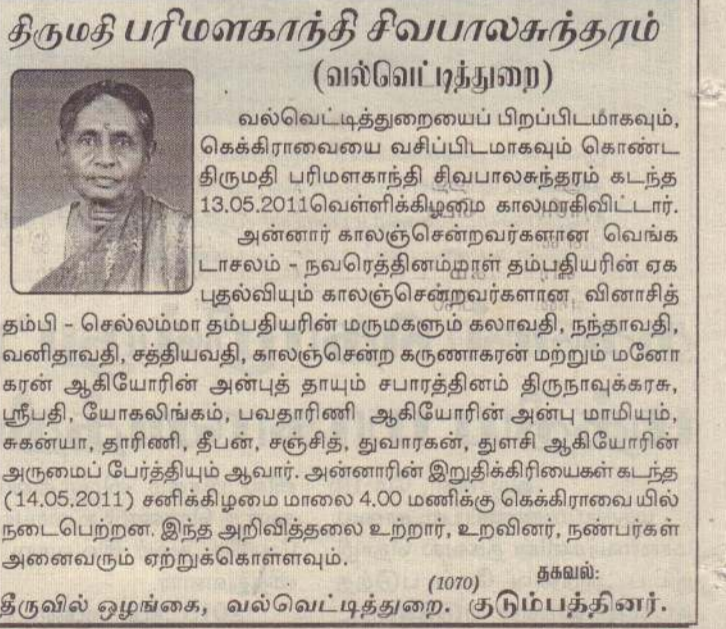 திருமதி பரிமளகாந்தி சிவபாலசுந்தரம்
(வல்வெட்டித்துறை)
வல்வெட்டித்துறையைப் பிறப்பிடமாகவும்,
கெக்கிராவையை வசிப்பிடமாகவும் கொண்ட
திருமதி பரிமளகாந்தி சிவபாலசுந்தரம் கடந்த
13.05.2011வெள்ளிக்கிழமை காலமாகிவிட்டார்.
அன்னார் காலஞ்சென்றவர்களான வெங்க
டாசலம் - நவரெத்தினம்மாள் தம்பதியரின் ஏக
புதல்வியும் காலஞ்சென்றவர்களான வினாசித்
தம்பி - செல்லம்மா தம்பதியரின் மருமகளும் கலாவதி, நந்தாவதி,
வனிதாவதி, சத்தியவதி, காலஞ்சென்ற கருணாகரன் மற்றும் மனோ
கரன் ஆகியோரின் அன்புத் தாயும் சபாரத்தினம் திருநாவுக்கரசு,
ஸ்ரீபதி, யோகலிங்கம், பவதாரிணி ஆகியோரின் அன்பு மாமியும்,
சுகன்யா, தாரிணி, தீபன், சஞ்சித், துவாரகன், துளசி ஆகியோரின்
அருமைப் பேர்த்தியும் ஆவார். அன்னாரின் இறுதிக்கிரியைகள் கடந்த
(14.05.2011) சனிக்கிழமை மாலை 4.00 மணிக்கு கெக்கிராவை யில்
நடைபெற்றன. இந்த அறிவித்தலை உற்றார், உறவினர், நண்பர்கள்
அனைவரும் ஏற்றுக்கொள்ளவும்.
(1070) தகவல்:
தீருவில் ஒழுங்கை, வல்வெட்டித்துறை. குடும்பத்தினர்.